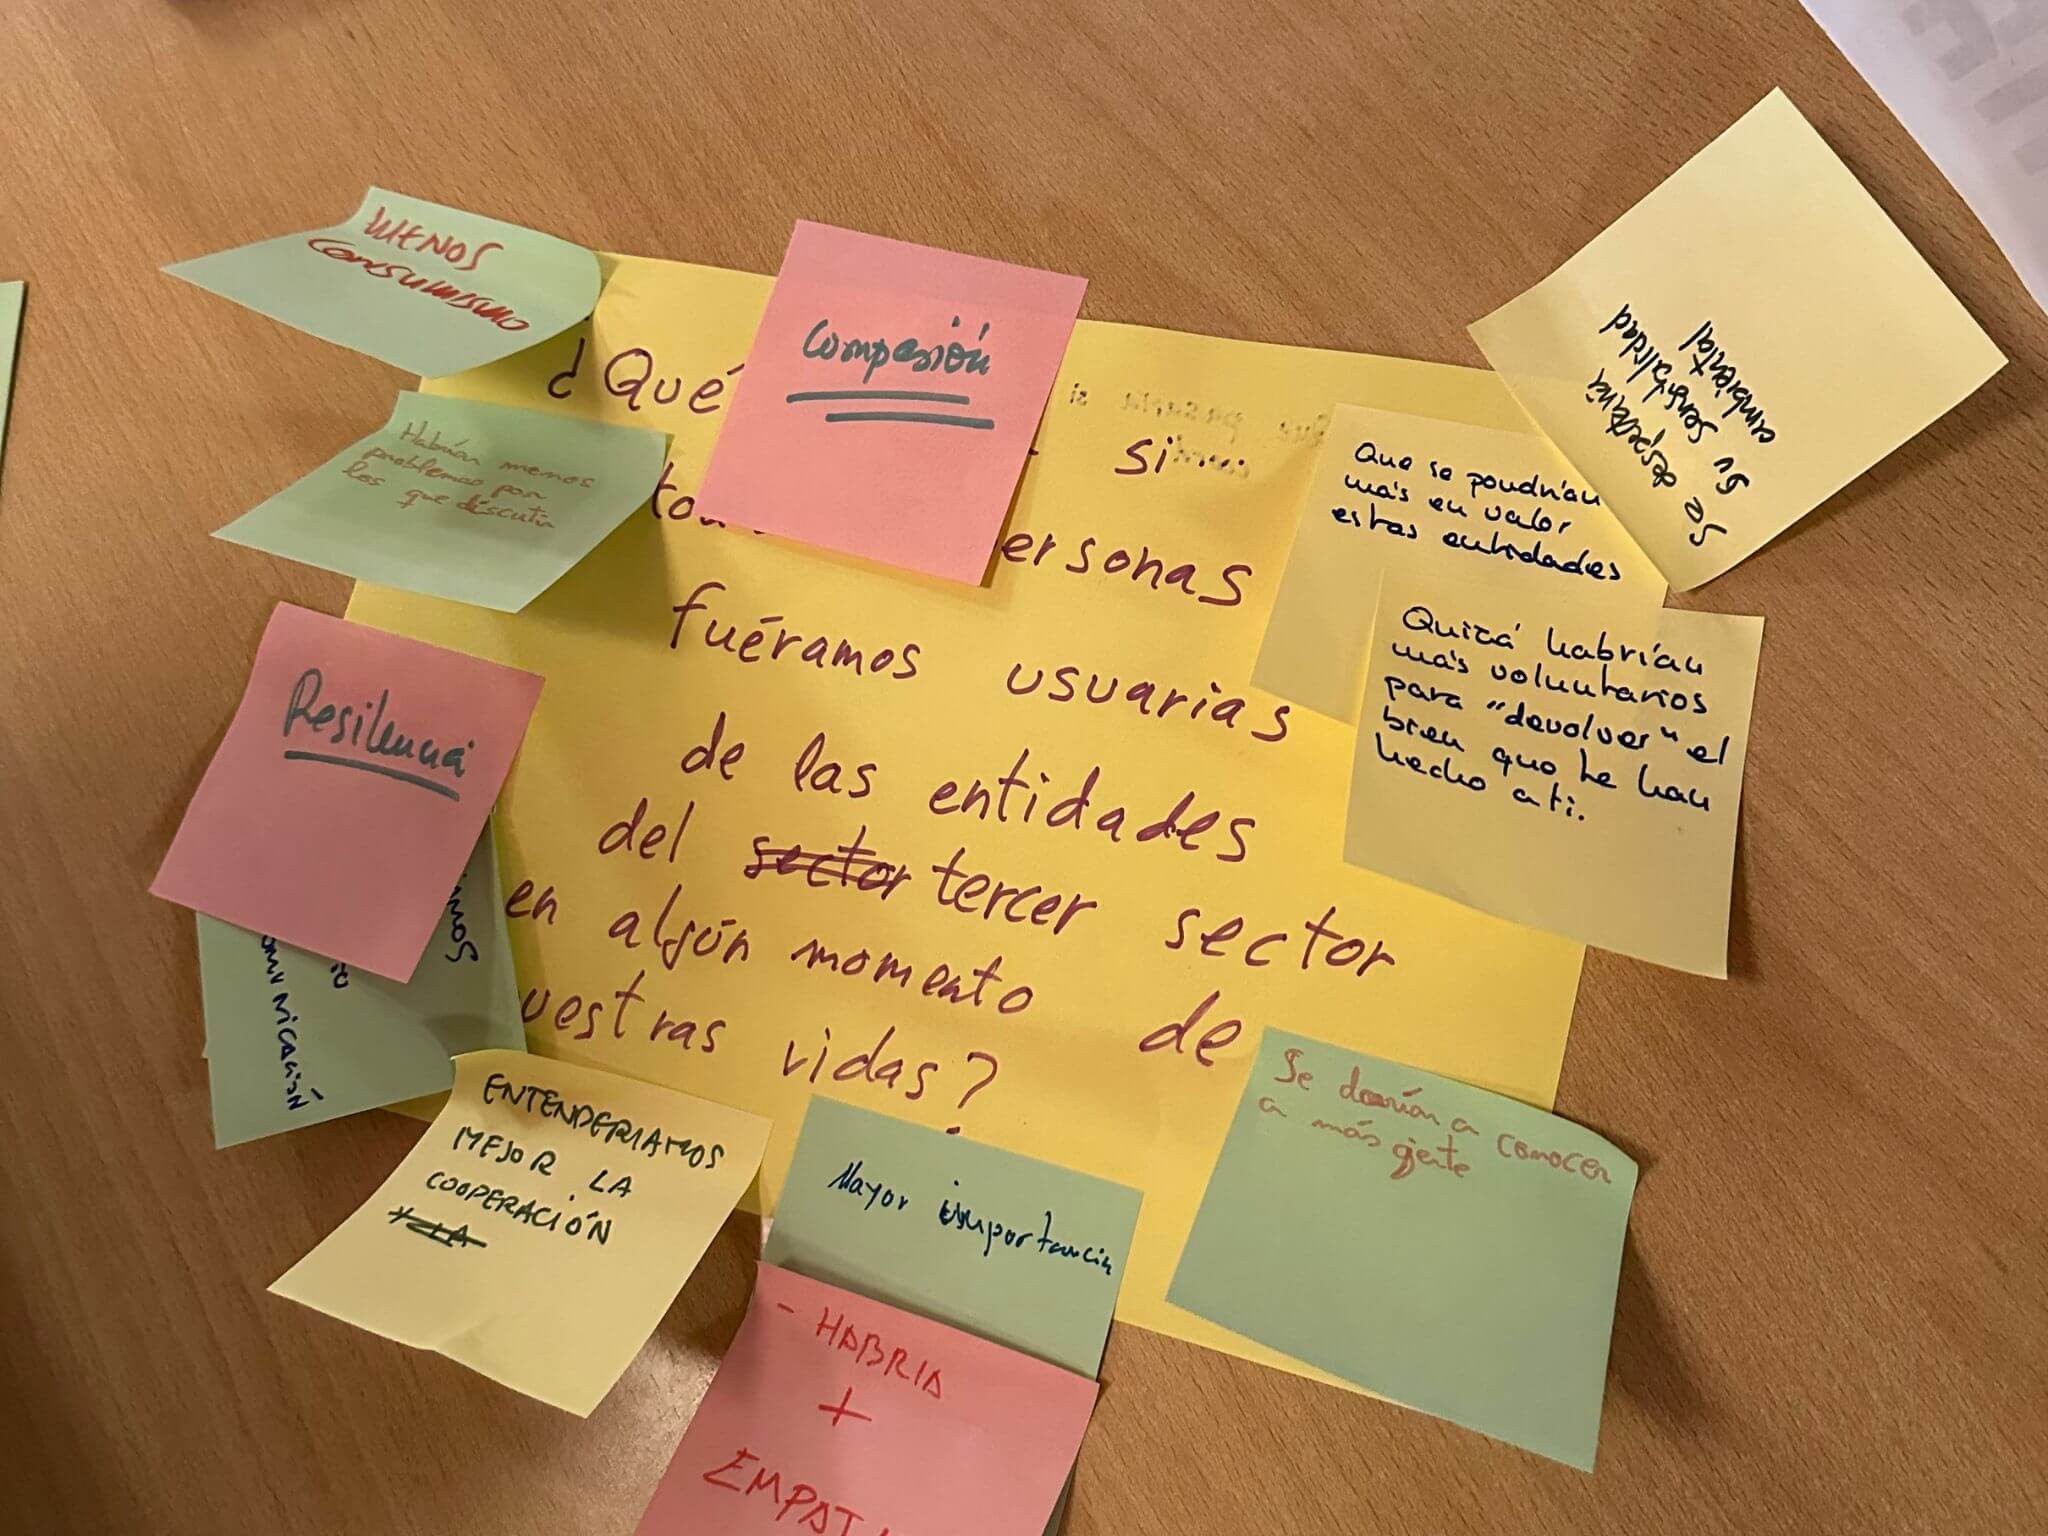 MENOS
consumismo
Compasión
Habrían menos
problemas por
los que discutir
Resilencia
¿Qué
si
ersonas
fuéramos usuarias
de las entidades
del sector tercer sector
en algún momento de
uestras vidas?
Que se poudrían
más en valor
estas entidades
Se despertaría
su sensibilidad
ambiental
Quizá habrían
más voluntarios
para "devolver" el
bien que te han
hecho a ti.
ENTENDERIAMOS
MEJOR LA
COOPERACIÓN
Mayor importancia
- HABRIA
+
EMPAT
Se darían a conocer
a más gente